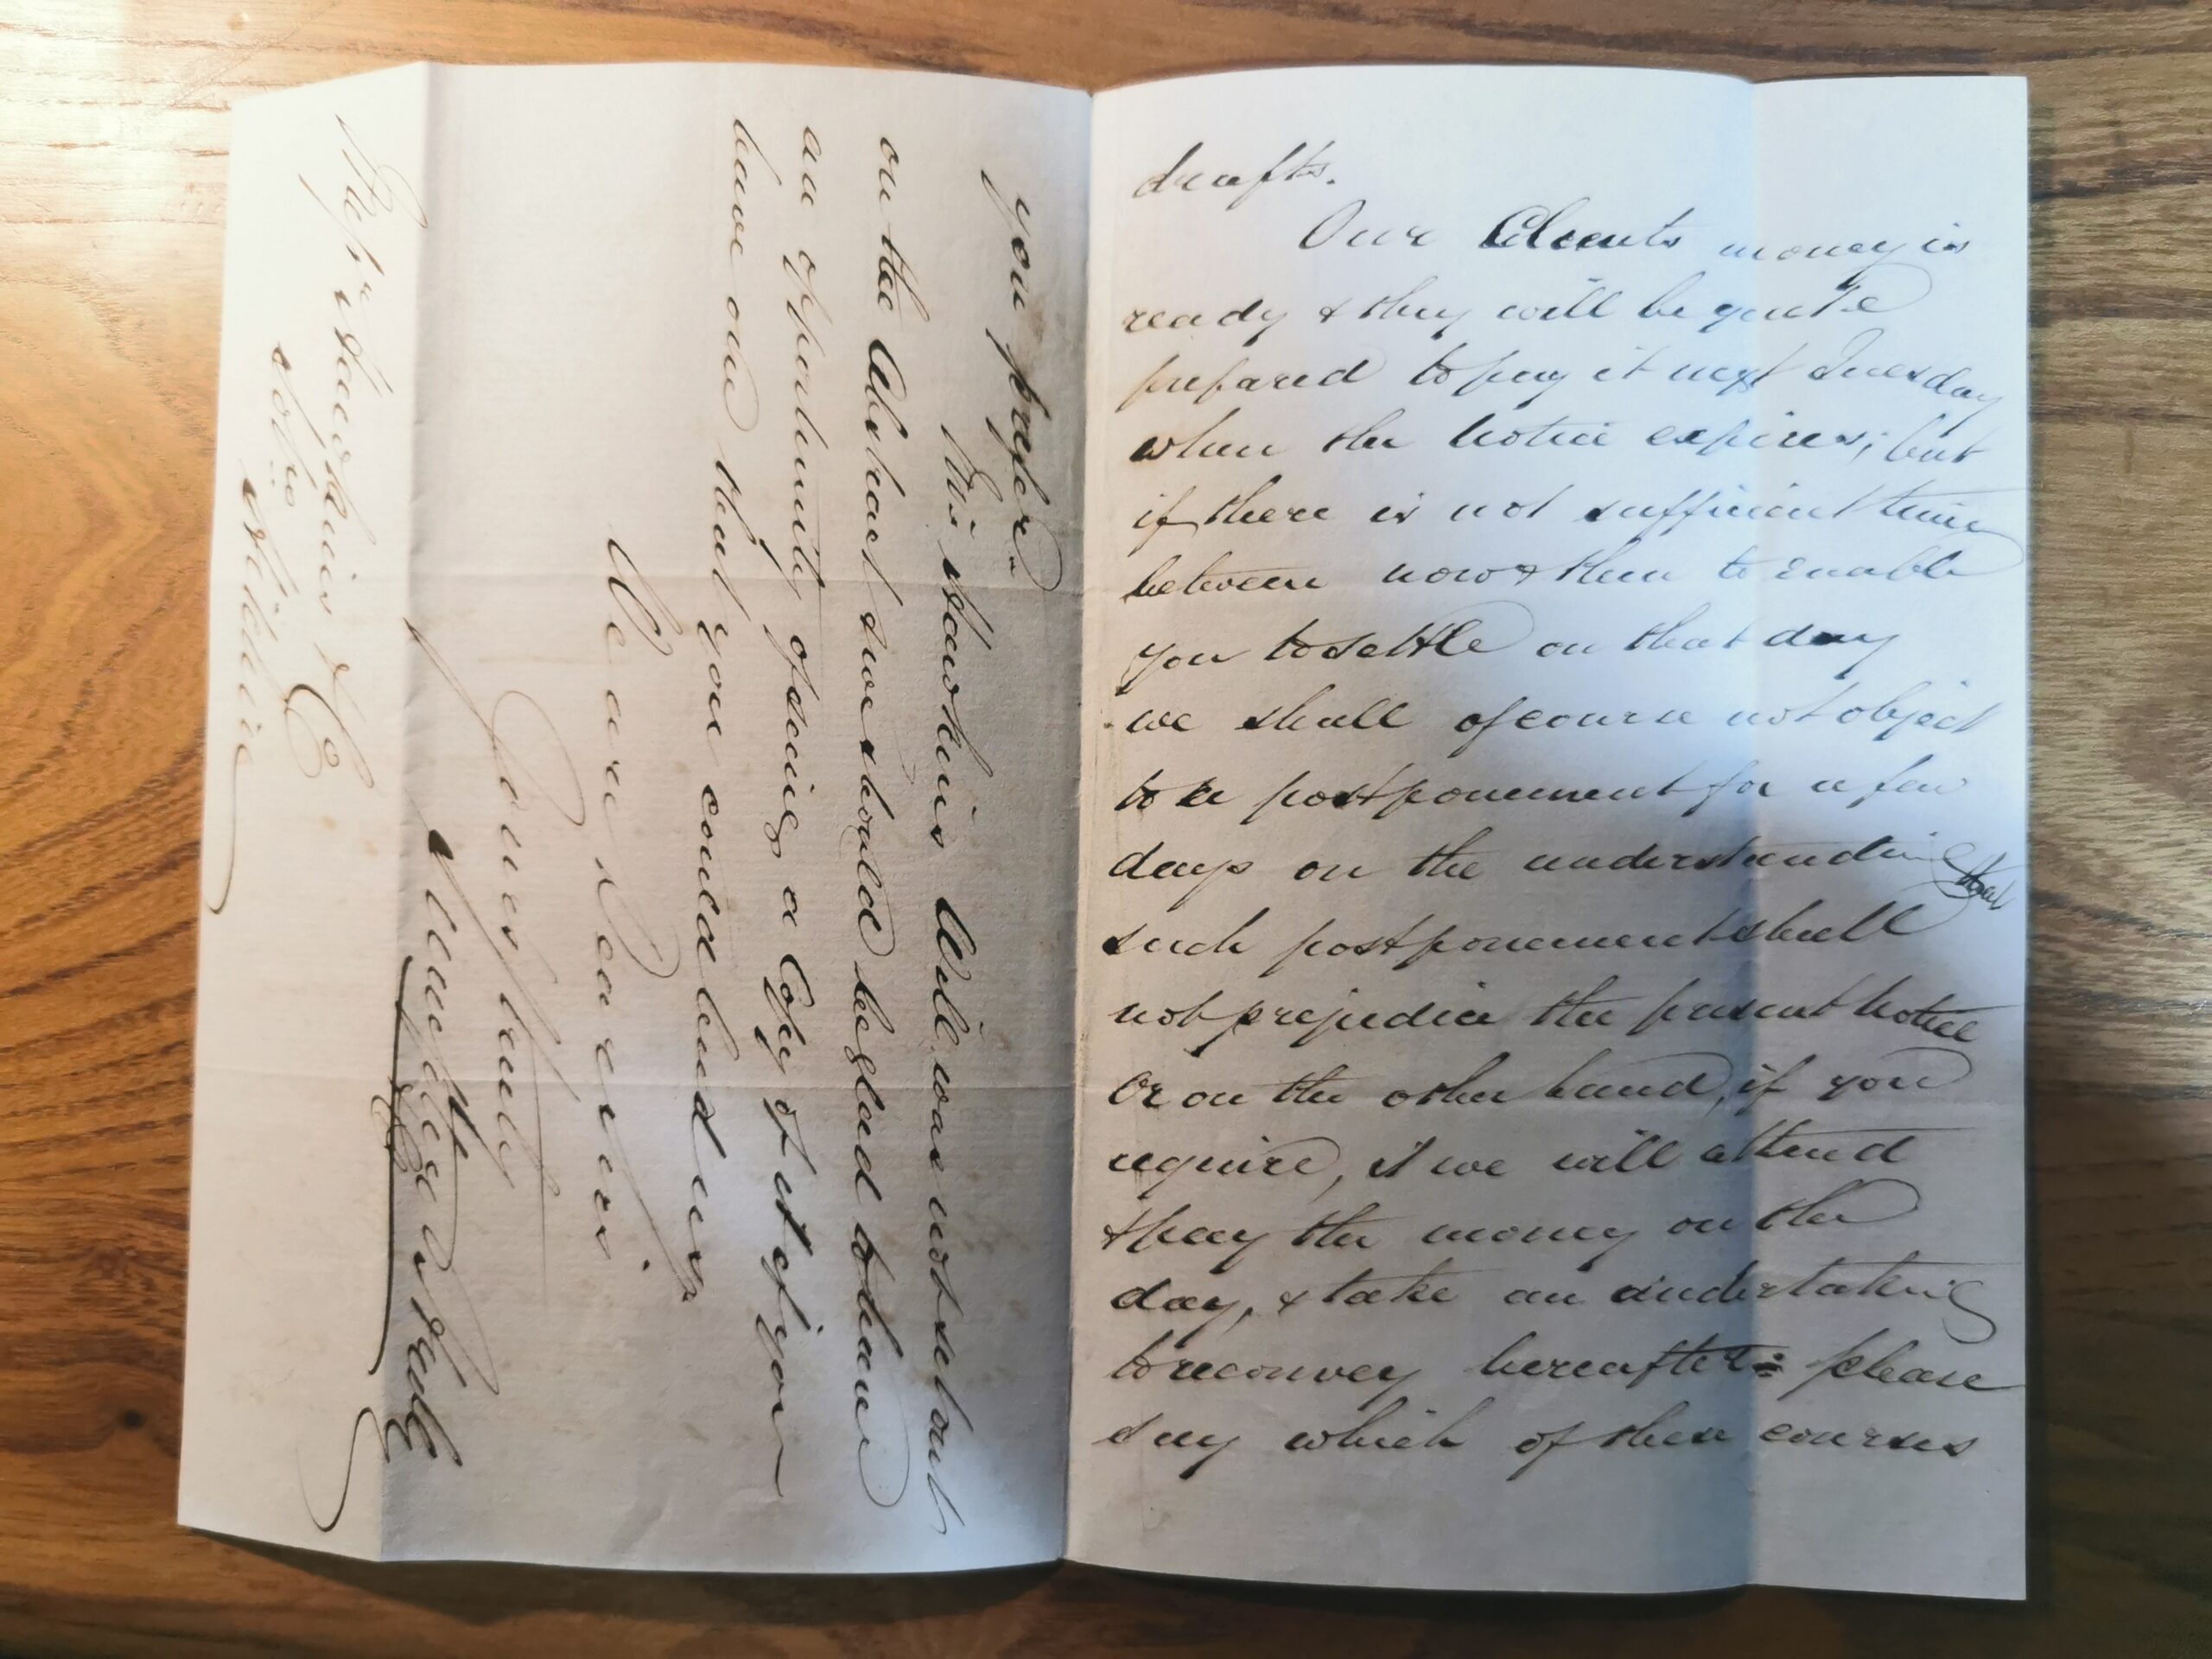 drafts.
Our Clients money is
ready & they will be quite
prepared to pay it next Tuesday
when the notice expires; but
if there is not sufficient time
between now & then to enable
you to settle on that day
we shall of course not object
to a postponement for a few
days on the understanding that
such postponement shall
not prejudice the present notice
Or on the other hand, if you
require, it we will attend
& pay the money on the
day, & take an undertaking
to reconvey hereafter = please
say which of these courses
you prefer.
on the Abstract & we should be glad to have
an opportunity of seeing a Copy of it if you
have one that you could lend us
We are Dear Sirs
Yours truly